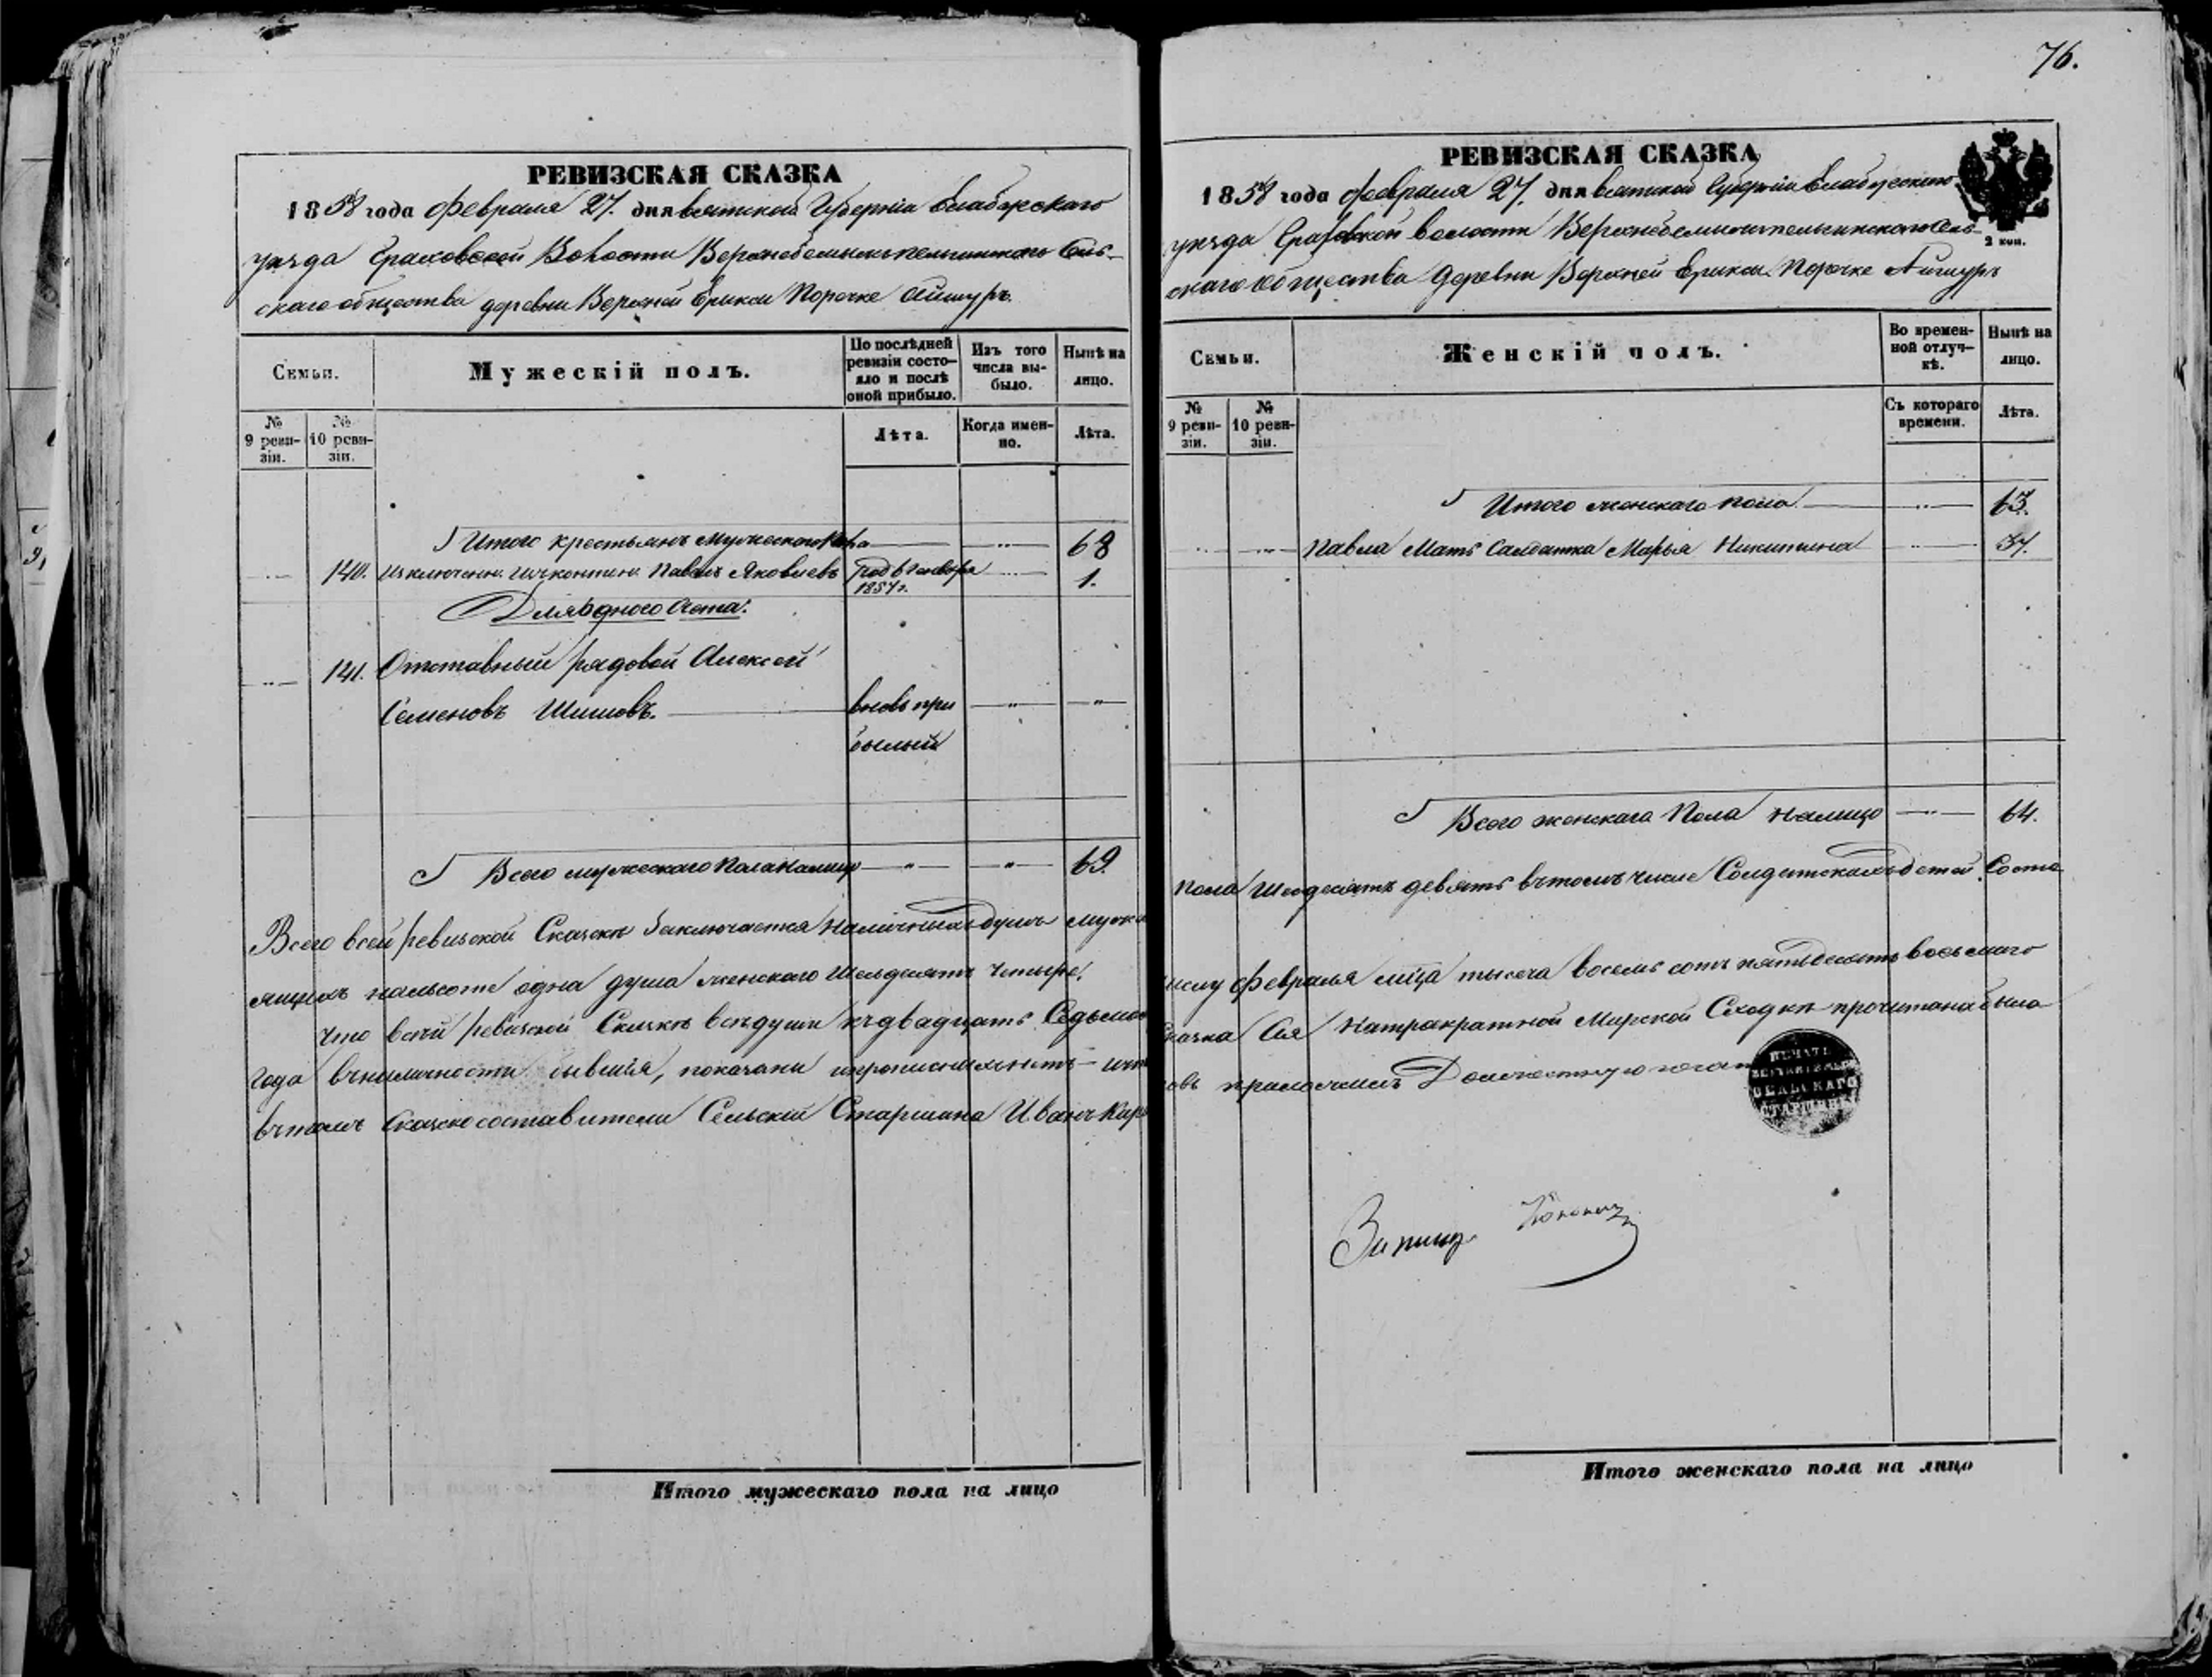 76.
РЕВИЗСКАЯ СКАЗКА
1858 года Февраля 27. дня Вятской Губернiи Елабужскаго
уѣзда Граховской Волости Сель-
скаго общества деревни Верхней Ерыкси Поречке Айшуръ.
Семьи.
Мужескiй полъ.
По послѣдней ревизiи состо-яло и послѣ оной прибыло.
Изъ того числа вы-было.
Нынѣ на лицо.
№ 9 реви-зiи.
№ 10 реви-зiи.
Лѣта.
Когда имен-но.
Лѣта.
Итого крестьянъ мужескаго пола — „ — 68
„ 140. Павелъ Яковлевъ род. в Генваря 1857 г. „ 1.
Для однаго счета.
„ 141. Отставный рядовой Алексей
Семеновъ Шишовъ. — вновь при — „ — — „ —
былый
Всего мужескаго пола налицо — „ — — „ — 69.
Всего в сей ревизской Сказкѣ заключается наличныхъ душъ мужска
ящихъ одна душа женскаго шесдесятъ четыре.
что в сей ревизской Сказкѣ все души къ двадцать Седьмо
года въ наличности бывшiя, показаны и прописныхъ нетъ — и что
въ томъ Сказкосоставители Сельскiй Старшина Иванъ Кир
Итого мужескаго пола на лицо
РЕВИЗСКАЯ СКАЗКА
2 коп.
1858 года Февраля 27. дня Вятской Губернiи Елабужскаго
уѣзда Граховской волости Сель-
скаго общества деревни Верхней Ерыкси Поречке Айшуръ
Семьи.
Женскiй полъ.
Во времен-ной отлуч-кѣ.
Нынѣ на лицо.
№ 9 реви-зiи.
№ 10 реви-зiи.
Съ котораго времени.
Лѣта.
Итого женскаго пола — „ — 63.
„ „ Павла Мать Салдатка Марья Никитина — „ — 37.
Всего женскаго Пола налицо — „ — 64.
пола Шесдесятъ девять въ томъ числе Солдатскихъ детей Состо
числу Февраля мца тысеча восемь сотъ пятьдесятъ восьмаго
Сказка Сiя на троекратной Мирской Сходкѣ прочитана была
овъ приложилъ Должностную
ПЕЧАТЬ
СЕЛЬСКАГО
СТАРШИНЫ
Итого женскаго пола на лицо